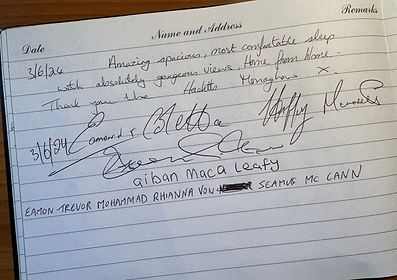 Date Name and Address Remarks
3/6/24 Amazing spacious, most comfortable sleep
with absolutely gorgeous views. Home from Home.
Thank you the Monaghan x
3/6/24 Eamonn
aiban maca leafy
EAMON TREVOR MOHAMMAD RHIANNA VON SEAMUS MC CANN